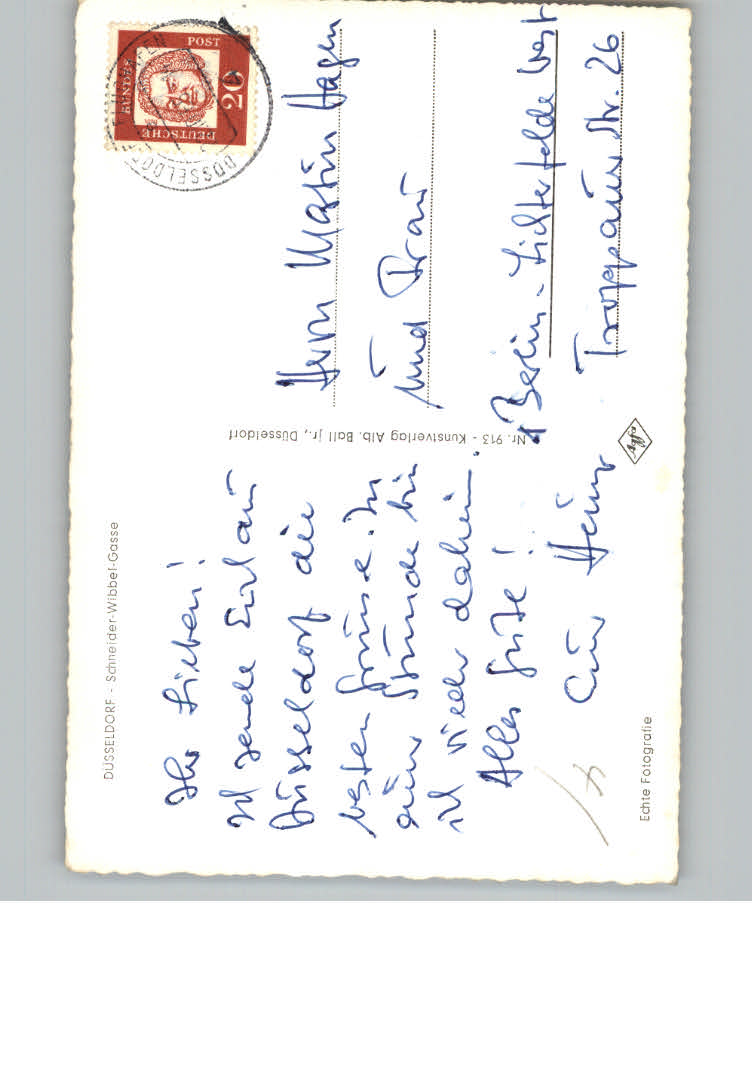 DÜSSELDORF - Schneider-Wibbel-Gasse
Ihr Lieben!
Ich sende Euch aus
Düsseldorf die
besten Grüsse. In
einer Stunde bin
ich wieder daheim.
Alles Gute!
Euer Heinz
Echte Fotografie
Nr. 913 - Kunstverlag Alb. Ball jr., Düsseldorf
Agfa
DEUTSCHE
BUNDES
POST
20
DÜSSELDORF
Herrn Martin Hagen
und Frau
1 Berlin-Lichterfelde West
Troppauer Str. 26